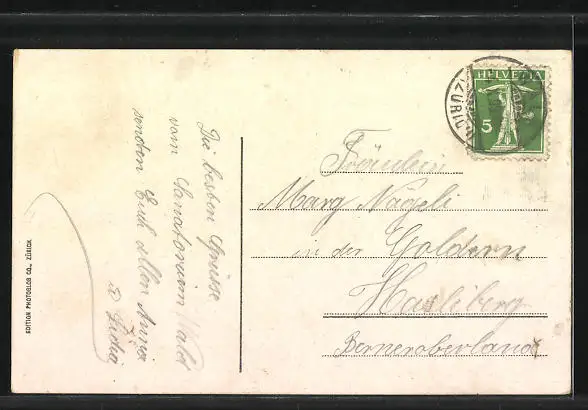 Die besten Grüsse
vom Sanatorium Wald
senden Euch allen Anna
u. Lidia
EDITION PHOTOGLOB CO., ZÜRICH
HELVETIA
5
Fräulein
Marg Nägeli
in der Goldern
Hasliberg
Berneroberland